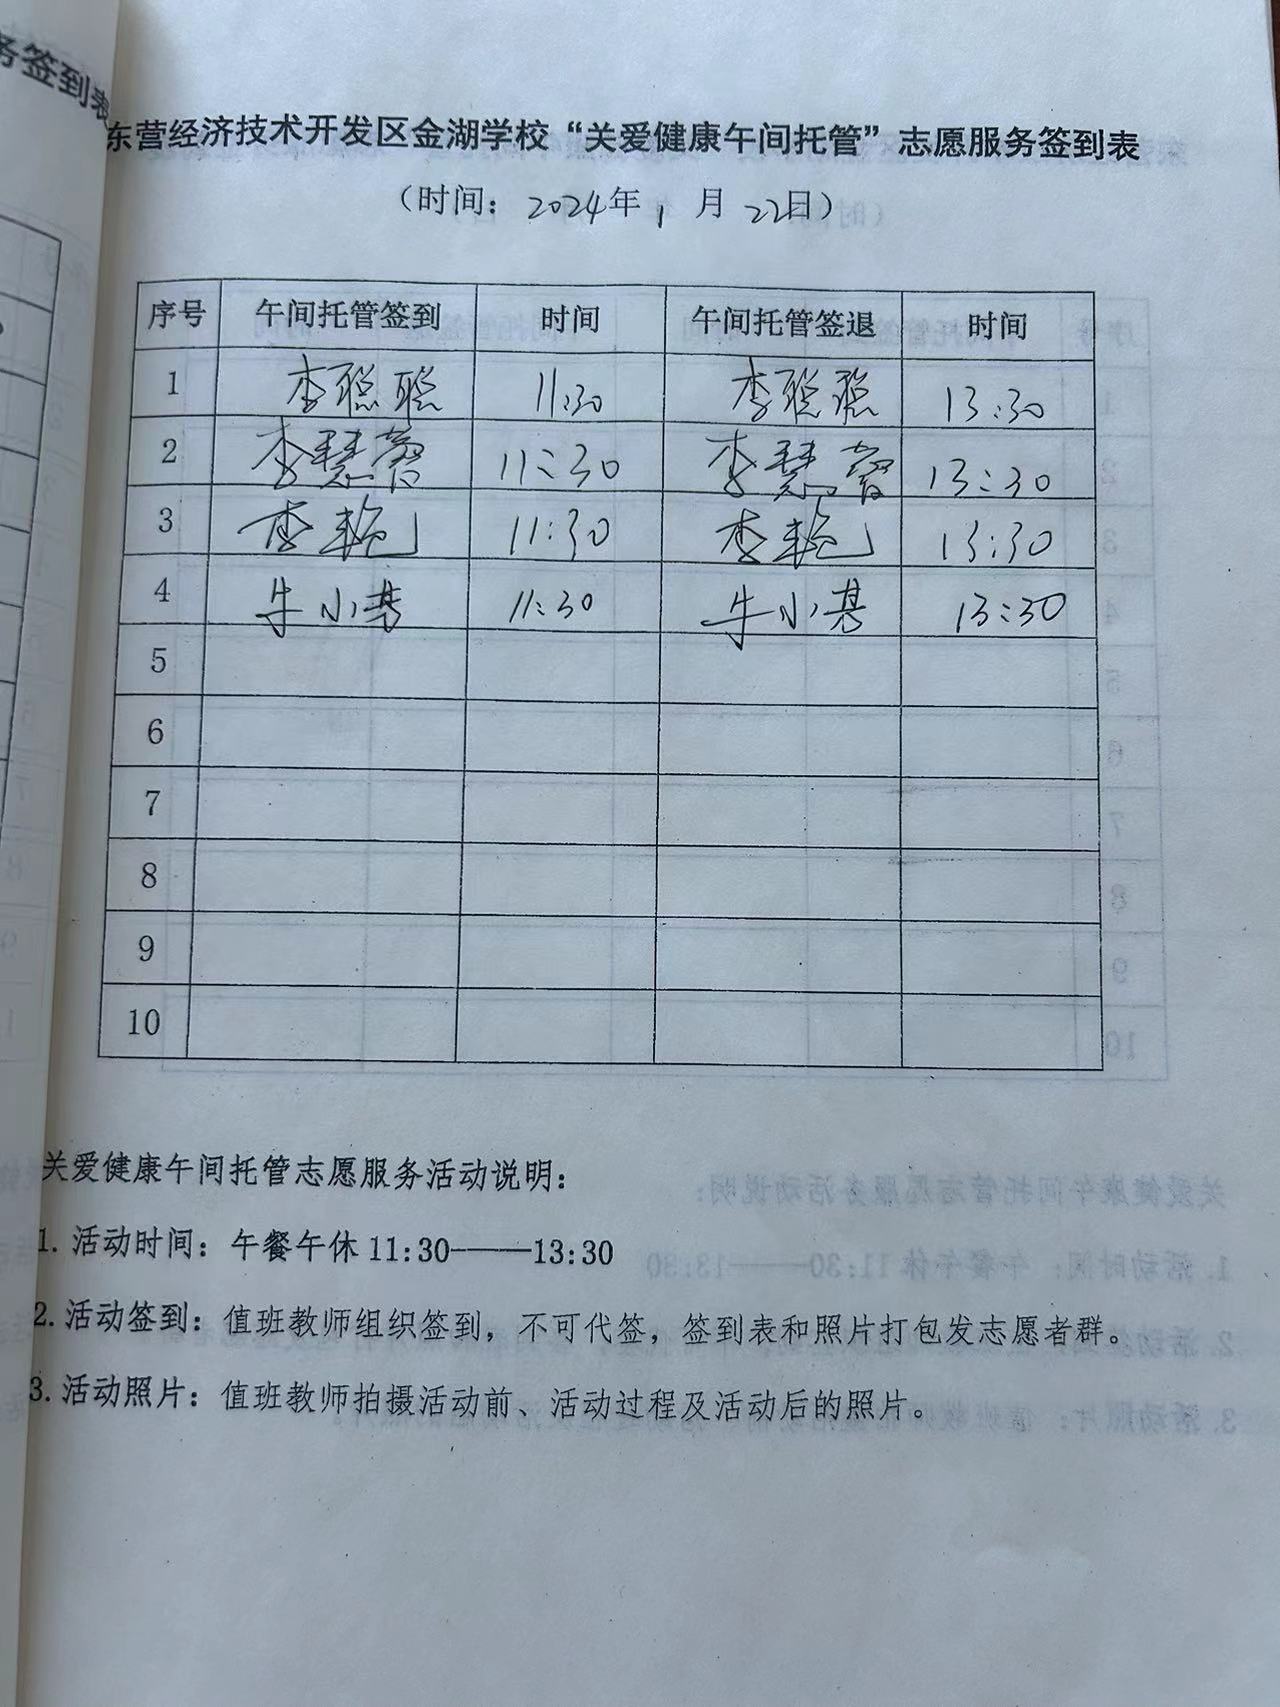 务签到表
东营经济技术开发区金湖学校“关爱健康午间托管”志愿服务签到表
（时间：2024年1月22日）
序号 午间托管签到 时间 午间托管签退 时间
1 李聪聪 11:30 李聪聪 13:30
2 李慧蓉 11:30 李慧蓉 13:30
3 李艳 11:30 李艳 13:30
4 牛小 11:30 牛小 13:30
5
6
7
8
9
10
关爱健康午间托管志愿服务活动说明：
1. 活动时间：午餐午休 11:30——13:30
2. 活动签到：值班教师组织签到，不可代签，签到表和照片打包发志愿者群。
3. 活动照片：值班教师拍摄活动前、活动过程及活动后的照片。